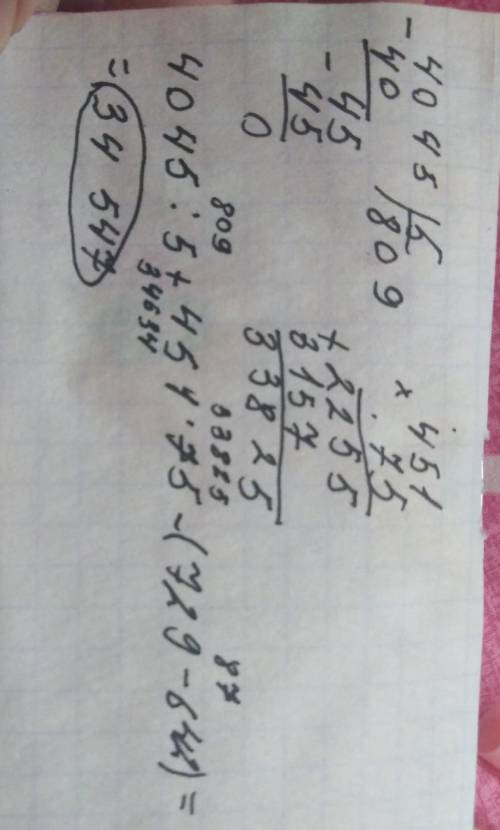 - 4045 | 5
40 809
- 45
45
0
× 451
75
+ 2255
3157
33825
809 33825 87
4045 : 5 + 451 · 75 - (729 - 642) =
34634
= 34 547